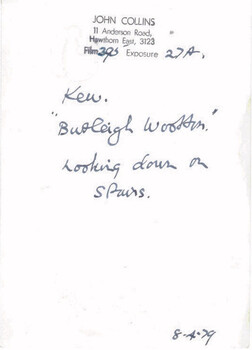 JOHN COLLINS
11 Anderson Road,
Hawthorn East, 3123
Film 395 Exposure 27A.
Kew.
"Burleigh Wootton."
Looking down on
stairs.
8-4-79